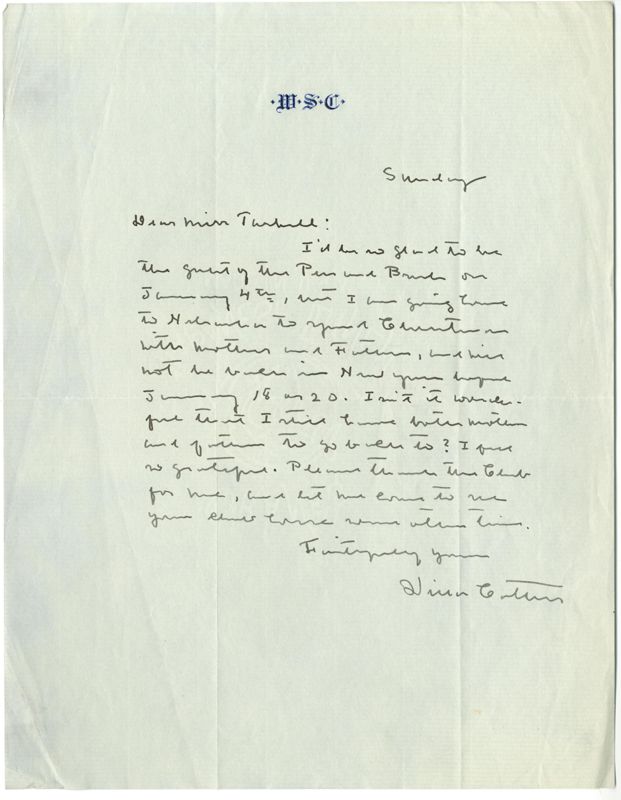 ·W·S·C·
Sunday
Dear Miss Tarbell:
I'd be so glad to be
the guest of the Pen and Brush on
January 4th, but I am going home
to Nebraska to spend Christmas
with Mother and Father, and will
not be back in New York before
January 18 or 20. Isn't it wonder-
ful that I still have both mother
and father to go back to? I feel
so grateful. Please thank the Club
for me, and let me come to see
your club house some other time.
Faithfully yours
Willa Cather